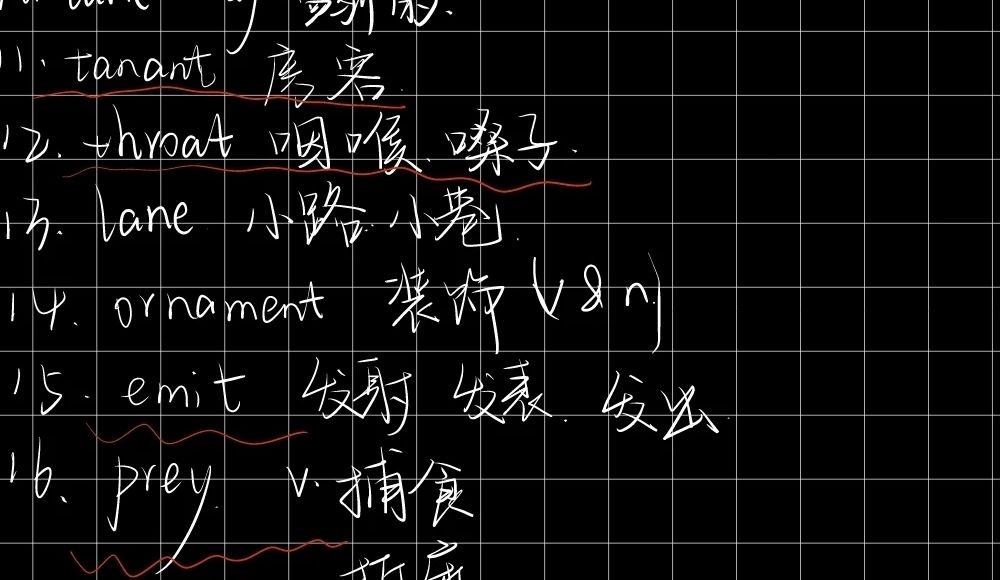 11. tanant 房客.
12. throat 咽喉. 嗓子.
13. lane 小路. 小巷.
14. ornament 装饰 (v & n)
15. emit 发射 发表. 发出.
16. prey v. 捕食